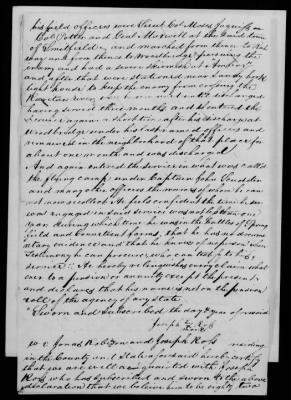 his field officers were Lieut Col Moses Jaquish
Col Potter and Genl Maxwell at the small town
of and marched from there to Rah
way and from thence to Woodbridge pursuing the
enemy and had a severe skirmish at Amboy
and after that were stationed near Sandy hook
light house to keep the army from crossing the
Raritan river
having served three months and entered the
service again a short time after his discharge at
Woodbridge under his last named officers and
remained in the neighborhood of that place for
about one month and was discharged
And again entered the service in what was called
the flying camp under Captain John Scudder
and many other officers the names of whom he can
not now recollect he feels confident the time he so
was engaged in said service was not less than one
year during which time he was in the battles of Spring
field and Connecticut farms, that he has no docume
ntary evidence and that he knows of no person whose
testimony he can procure who can testify to his
service. He hereby relinquishes every claim what
ever to a pension or annuity except the present
and declares that his name is not on the pension
roll of the agency of any state
Sworn and subscribed the day & year aforesaid
Joseph Ross
We Jonas and Joseph Ross residing
in the County and State aforesaid hereby certify
that we are well acquainted with Joseph
Ross who has subscribed and sworn to the above
declaration that we believe him to be eighty two